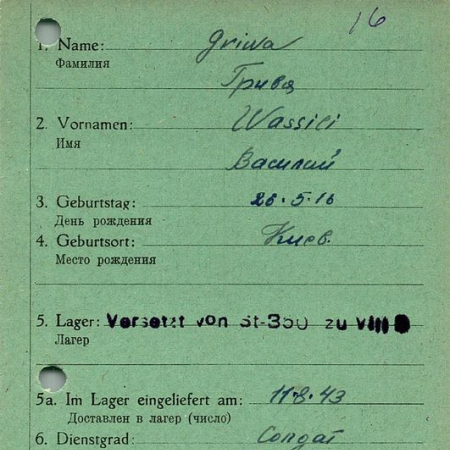 16
1. Name: Griwa
Фамилия
Грива
2. Vornamen: Wassili
Имя
Василий
3. Geburtstag: 26.5.16
День рождения
4. Geburtsort: Киев.
Место рождения
5. Lager: Versetzt von St-350 zu VIII B
Лагер
5a. Im Lager eingeliefert am: 11.8.43
Доставлен в лагер (число)
6. Dienstgrad: